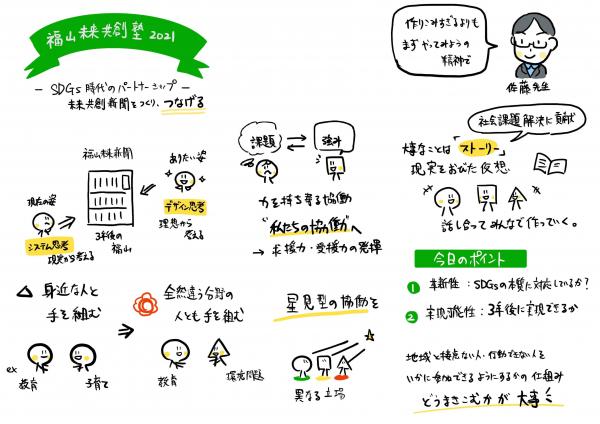 福山未来共創塾2021
— SDGs時代のパートナーシップ —
未来共創新聞をつくり、つなげる
福山未来新聞
現在の姿
システム思考
現実から考える
3年後の
福山
ありたい姿
デザイン思考
理想から
考える
課題
強み
力を持ち寄る協働
"私たちの協働"へ
→ 求援力・受援力の発揮
身近な人と
手を組む
ex
教育
子育て
全然違う分野の
人とも手を組む
教育
環境問題
星見型の協働を
異なる立場
作りこみすぎるよりも
まずやってみようの
精神で
佐藤先生
社会課題解決に貢献
大事なことは「ストーリー」
現実をおびた仮想
話し合ってみんなで作っていく。
今日のポイント
1 革新性:SDGsの本質に対応しているか?
2 実現可能性:3年後に実現できるか
地域と接点ない人・行動できない人を
いかに参加できるようにするかの仕組み
どうまきこむかが大事